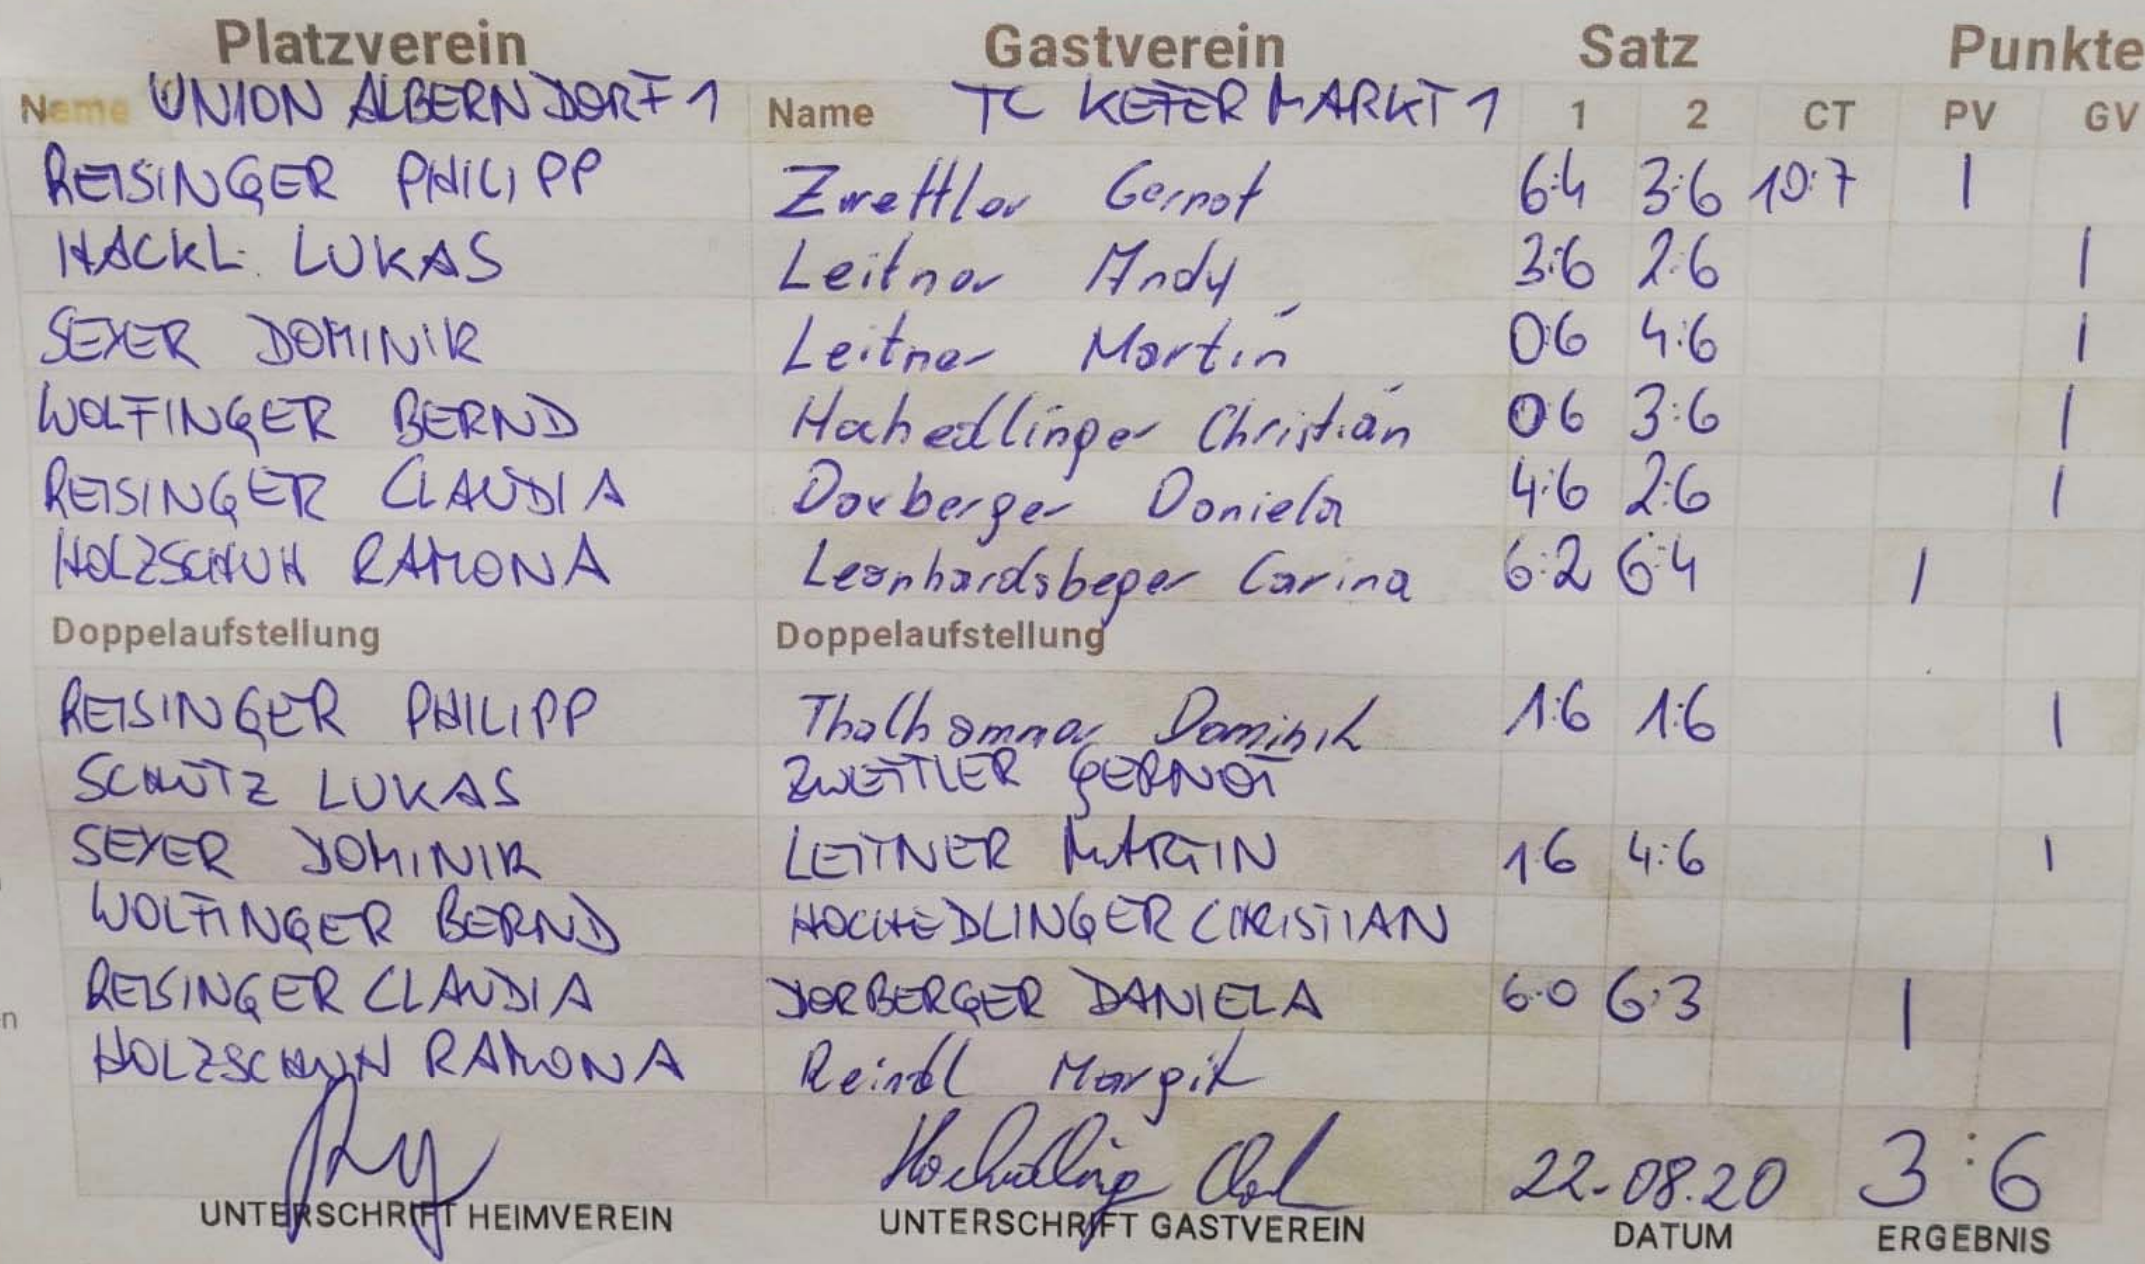 Platzverein Gastverein Satz Punkte
Name UNION ALBERNDORF 1 Name TC KEFERMARKT 1 1 2 CT PV GV
REISINGER PHILIPP Zwettler Gernot 6:4 3:6 10:7 1
HACKL LUKAS Leitner Andy 3:6 2:6 1
SEYER DOMINIK Leitner Martin 0:6 4:6 1
WOLFINGER BERND Hochedlinger Christian 0:6 3:6 1
REISINGER CLAUDIA Dorberger Daniela 4:6 2:6 1
HOLZSCHUH RAMONA Leonhardsbeger Carina 6:2 6:4 1
Doppelaufstellung Doppelaufstellung
REISINGER PHILIPP Thalhammer Dominik 1:6 1:6 1
SCHÜTZ LUKAS ZWETTLER GERNOT
SEYER DOMINIK LEITNER MARTIN 1:6 4:6 1
WOLFINGER BERND HOCHEDLINGER CHRISTIAN
REISINGER CLAUDIA DORBERGER DANIELA 6:0 6:3 1
HOLZSCHUH RAMONA Reindl Margit
22.08.20 3:6
UNTERSCHRIFT HEIMVEREIN UNTERSCHRIFT GASTVEREIN DATUM ERGEBNIS